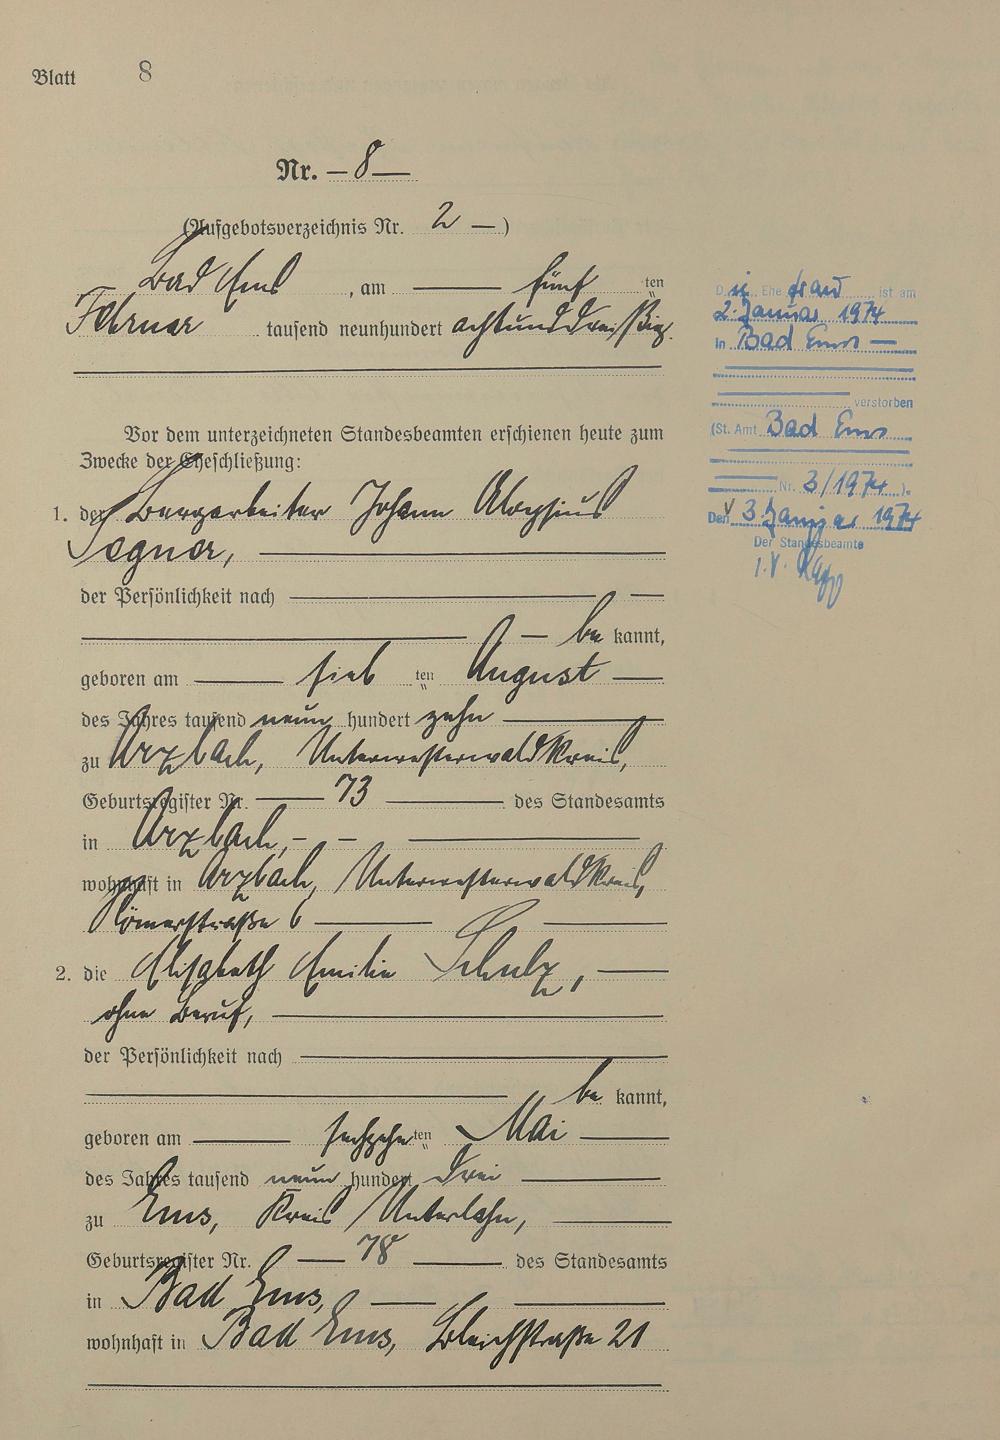 Blatt 8
Nr. 8
(Aufgebotsverzeichnis Nr. 2 )
Bad Ems , am fünf ten
Februar tausend neunhundert achtunddreißig.
Vor dem unterzeichneten Standesbeamten erschienen heute zum
Zwecke der Eheschließung:
1. der Bergarbeiter Johann Aloysius
der Persönlichkeit nach
be kannt,
geboren am sieb ten August
des Jahres tausend neun hundert zehn
zu Arzbach, Unterwesterwaldkreis,
Geburtsregister Nr. 73 des Standesamts
in Arzbach,
wohnhaft in Arzbach, Unterwesterwaldkreis,
Römerstraße 6
2. die Elisabeth Emilie Schulz,
ohne Beruf,
der Persönlichkeit nach
be kannt,
geboren am sechzehn ten Mai
des Jahres tausend neun hundert drei
zu Ems, Kreis Unterlahn,
Geburtsregister Nr. 78 des Standesamts
in Bad Ems,
wohnhaft in Bad Ems, Bleichstraße 21
D ie Ehe frau ist am
2. Januar 1974
in Bad Ems
verstorben
(St. Amt Bad Ems
Nr. 3/1974 ).
Den 3. Januar 1974
Der Standesbeamte
I.V.